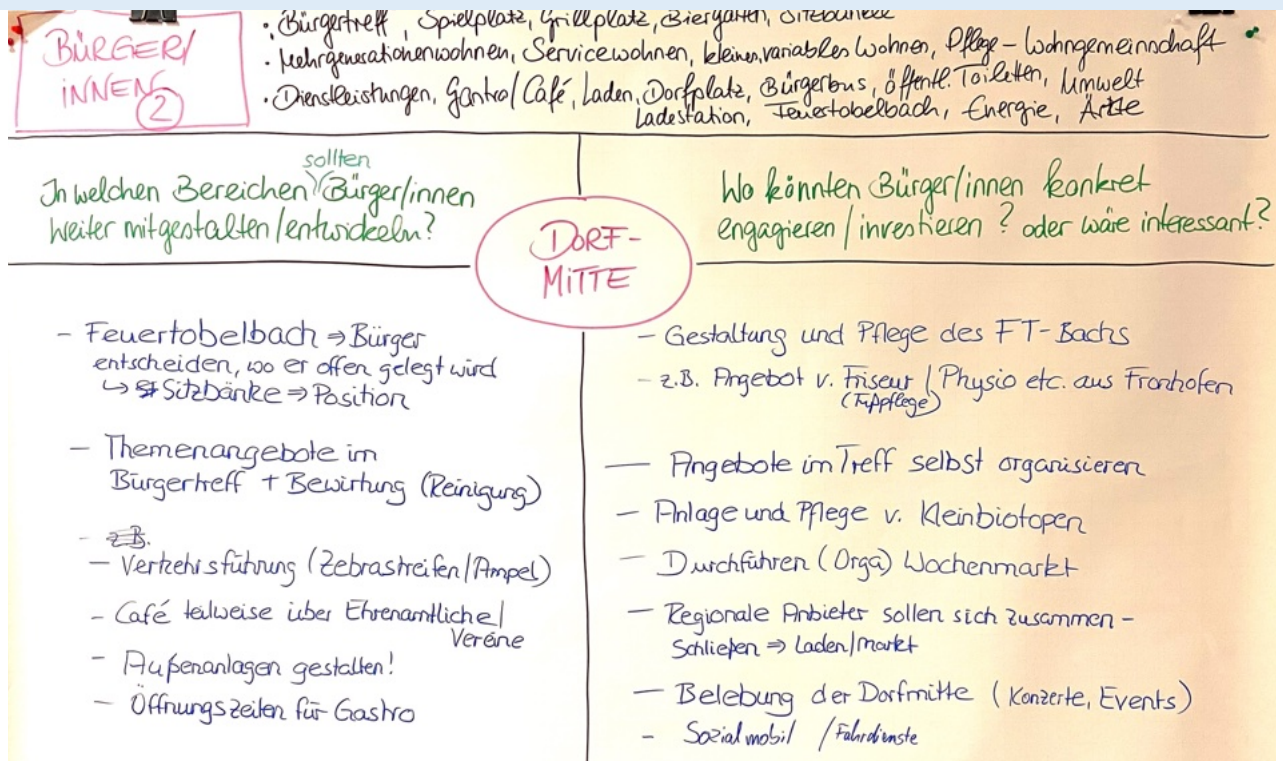 BÜRGER/
INNEN
2
· Bürgertreff, Spielplatz, Grillplatz, Biergarten, Sitzbänke
· Mehrgenerationenwohnen, Servicewohnen, kleines, variables Wohnen, Pflege-Wohngemeinnschaft
· Dienstleistungen, Gastro/Café, Laden, Dorfplatz, Bürgerbus, öffentl. Toiletten, Umwelt
Ladestation, Feuertobelbach, Energie, Ärzte
sollten
In welchen Bereichen Bürger/innen
weiter mitgestalten/entwickeln?
DORF-
MITTE
Wo könnten Bürger/innen konkret
engagieren/investieren? oder wäre interessant?
- Feuertobelbach ⇒ Bürger
entscheiden, wo er offen gelegt wird
↳ Sitzbänke ⇒ Position
- Themenangebote im
Bürgertreff + Bewirtung (Reinigung)
- z.B.
- Verkehrsführung (Zebrastreifen/Ampel)
- Café teilweise über Ehrenamtliche/
Vereine
- Außenanlagen gestalten!
- Öffnungszeiten für Gastro
- Gestaltung und Pflege des FT-Bachs
- z.B. Angebot v. Friseur / Physio etc. aus Fronhofen
(Fußpflege)
- Angebote im Treff selbst organisieren
- Anlage und Pflege v. Kleinbiotopen
- Durchführen (Orga) Wochenmarkt
- Regionale Anbieter sollen sich zusammen-
schließen ⇒ Laden/Markt
- Belebung der Dorfmitte (Konzerte, Events)
- Sozialmobil / Fahrdienste